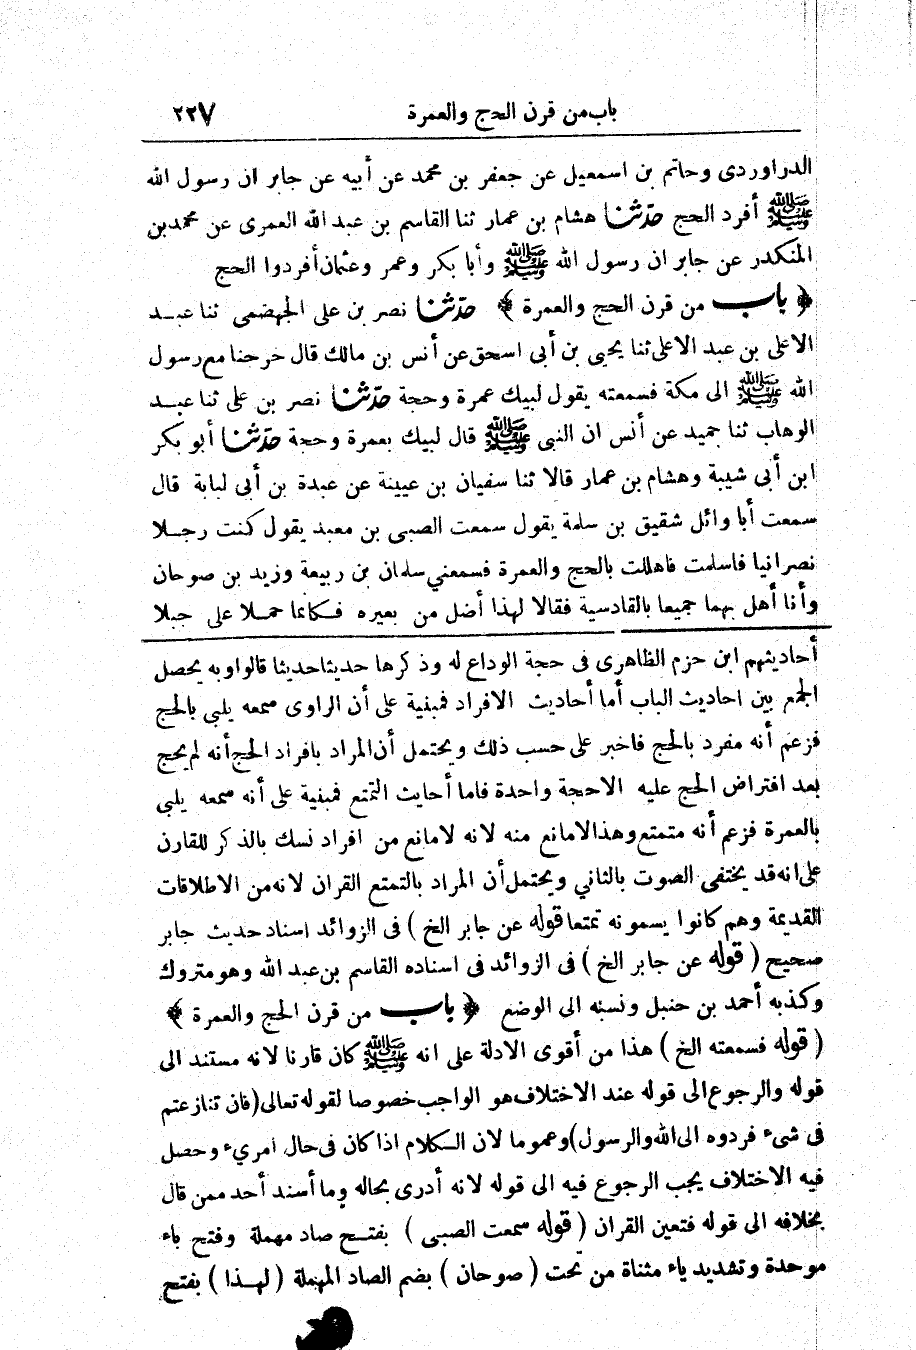 باب من قرن الحج والعمرة ٢٢٧
الدراوردى وحاتم بن اسمعيل عن جعفر بن محمد عن أبيه عن جابر ان رسول الله
ﷺ أفرد الحج حدثنا هشام بن عمار ثنا القاسم بن عبد الله العمرى عن محمد بن
المنكدر عن جابر ان رسول الله ﷺ وأبا بكر وعمر وعثمان أفردوا الحج
﴿ باب من قرن الحج والعمرة ﴾ حدثنا نصر بن على الجهضمى ثنا عبد
الاعلى بن عبد الاعلى ثنا يحيى بن أبى اسحق عن أنس بن مالك قال خرجنا مع رسول
الله ﷺ الى مكة فسمعته يقول لبيك عمرة وحجة حدثنا نصر بن على ثنا عبد
الوهاب ثنا حميد عن أنس ان النبى ﷺ قال لبيك بعمرة وحجة حدثنا أبو بكر
ابن أبى شيبة وهشام بن عمار قالا ثنا سفيان بن عيينة عن عبدة بن أبى لبابة قال
سمعت أبا وائل شقيق بن سلمة يقول سمعت الصبى بن معبد يقول كنت رجلا
نصرانيا فاسلمت فاهللت بالحج والعمرة فسمعني سلمان بن ربيعة وزيد بن صوحان
وأنا أهل بهما جميعا بالقادسية فقالا لهذا أضل من بعيره فكانما حملا على جبلا
أحاديثهم ابن حزم الظاهرى فى حجة الوداع له وذكرها حديثا حديثا قالوا وبه يحصل
الجمع بين احاديث الباب أما أحاديث الافراد فمبنية على أن الراوى سمعه يلبى بالحج
فزعم أنه مفرد بالحج فاخبر على حسب ذلك ويحتمل أن المراد بافراد الحج أنه لم يحج
بعد افتراض الحج عليه الاحجة واحدة فاما أحايث التمتع فمبنية على أنه سمعه يلبى
بالعمرة فزعم أنه متمتع وهذا لامانع منه لانه لامانع من افراد نسك بالذكر للقارن
على انه قد يختفى الصوت بالثاني ويحتمل أن المراد بالتمتع القران لانه من الاطلاقات
القديمة وهم كانوا يسمونه تمتعا قوله عن جابر الخ ) فى الزوائد اسناد حديث جابر
صحيح ( قوله عن جابر الخ ) فى الزوائد فى اسناده القاسم بن عبد الله وهو متروك
وكذبه أحمد بن حنبل ونسبه الى الوضع ﴿ باب من قرن الحج والعمرة ﴾
( قوله فسمعته الخ ) هذا من أقوى الادلة على انه ﷺ كان قارنا لانه مستند الى
قوله والرجوع الى قوله عند الاختلاف هو الواجب خصوصا لقوله تعالى (فان تنازعتم
فى شىء فردوه الى الله والرسول) وعموما لان الكلام اذا كان فى حال امريء وحصل
فيه الاختلاف يجب الرجوع فيه الى قوله لانه أدرى بحاله وما أسند أحد ممن قال
بخلافه الى قوله فتعين القران ( قوله سمعت الصبى ) بفتح صاد مهملة وفتح باء
موحدة وتشديد ياء مثناة من تحت ( صوحان ) بضم الصاد المهملة ( لهذا ) بفتح